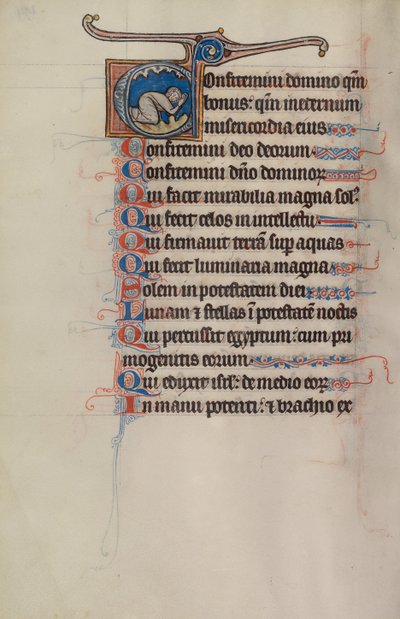 Confitemini domino qm̄
bonus: qm̄ ineternum
misericordia eius
Confitemini deo deorum
Confitemini dn̄o dominor̄
Qui facit mirabilia magna sol᷒
Qui fecit celos in intellectu
Qui firmauit terrā sup̄ aquas
Qui fecit luminaria magna
Solem in potestatem diei
Lunam ⁊ stellas ī potestatē noctis
Qui percussit egyptum: cum pri
mogenitis eorum
Qui eduxit isrl̄: de medio eor̄
In manu potenti: ⁊ brachio ex